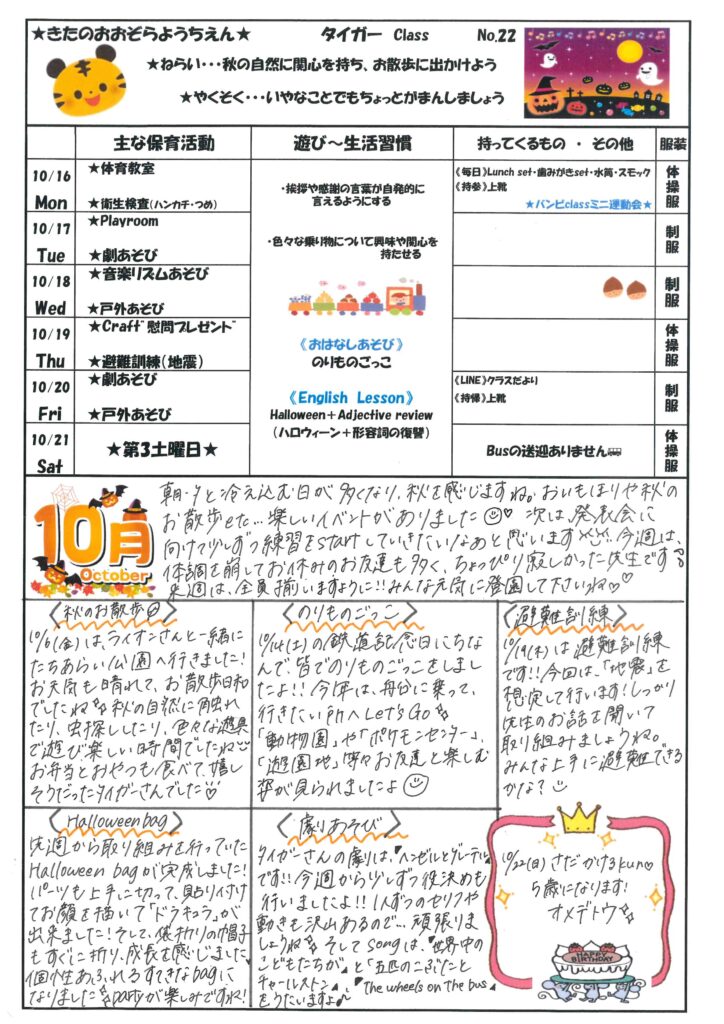 ★きたのおおぞらようちえん★ タイガー Class No.22
★ねらい・・・秋の自然に関心を持ち、お散歩に出かけよう
★やくそく・・・いやなことでもちょっとがまんしましょう
主な保育活動 遊び～生活習慣 持ってくるもの ・ その他 服装
10/16 Mon
★体育教室
★衛生検査(ハンカチ・つめ)
《毎日》Lunch set・歯みがきset・水筒・スモック
《持参》上靴
★バンビclassミニ運動会★
体操服
10/17 Tue
★Playroom
★劇あそび
制服
10/18 Wed
★音楽リズムあそび
★戸外あそび
制服
10/19 Thu
★Craft゛慰問プレゼント゛
★避難訓練(地震)
体操服
10/20 Fri
★劇あそび
★戸外あそび
《LINE》クラスだより
《持帰》上靴
制服
10/21 Sat
★第3土曜日★
Busの送迎ありません
体操服
・挨拶や感謝の言葉が自発的に
言えるようにする
・色々な乗り物について興味や関心を
持たせる
《おはなしあそび》
のりものごっこ
《English Lesson》
Halloween＋Adjective review
(ハロウィーン＋形容詞の復讐)
10月
October
朝・夕と冷え込む日が多くなり、秋を感じますね。おいもほりや秋の
お散歩etc...楽しいイベントがありました♡ 次は発表会に
向けて少しずつ練習をstartしていきたいなあと思います 今週は、
体調を崩してお休みのお友達も多く、ちょっぴり寂しかった先生です
来週は、全員揃いますように!!みんな元気に登園して下さいね♡♡
〈秋のお散歩〉
10/6(金)は、ライオンさんと一緒に
たちあらい公園へ行きました!
お天気も晴れて、お散歩日和
でしたね 秋の自然に触れ
たり、虫探ししたり、色々な遊具
で遊び楽しい時間でしたね
お弁当とおやつも食べて、嬉し
そうだったタイガーさんでした♡
〈のりものごっこ〉
10/14(土)の鉄道記念日にちな
んで、皆でのりものごっこをしまし
たよ!! 今年は、舟に乗って、
行きたい所へLet's Go
「動物園」や「ポケモンセンター」、
「遊園地」等々お友達と楽しむ
姿が見られましたよ
〈避難訓練〉
10/19(木)は避難訓練
です!!今回は、「地震」を
想定して行います!しっかり
先生のお話を聞いて
取り組みましょうね。
みんな上手に避難できる
かな?
〈Halloween bag〉
先週から取り組みを行っていた
Halloween bagが完成しました!
パーツも上手に切って、貼り付け
てお顔を描いて「ドラキュラ」が
出来ました!そして、俵折りの帽子
もすぐに折り、成長を感じました
個性あふれるすてきなbagに
なりました partyが楽しみですね!
〈劇あそび〉
タイガーさんの劇は、『ヘンゼルとグレーテル』
です!!今週から少しずつ役決めも
行いましたよ!!1人ずつのセリフや
動きも沢山あるので... 頑張りま
しょうね そしてsongは、『世界中の
こどもたちが』と『五匹のこぶたと
チャールストン』、『the wheels on the bus』
をうたいますよ♪
10/22(日) さだ かけるkun♡
5歳になります!
オメデトウ
HAPPY
BIRTHDAY